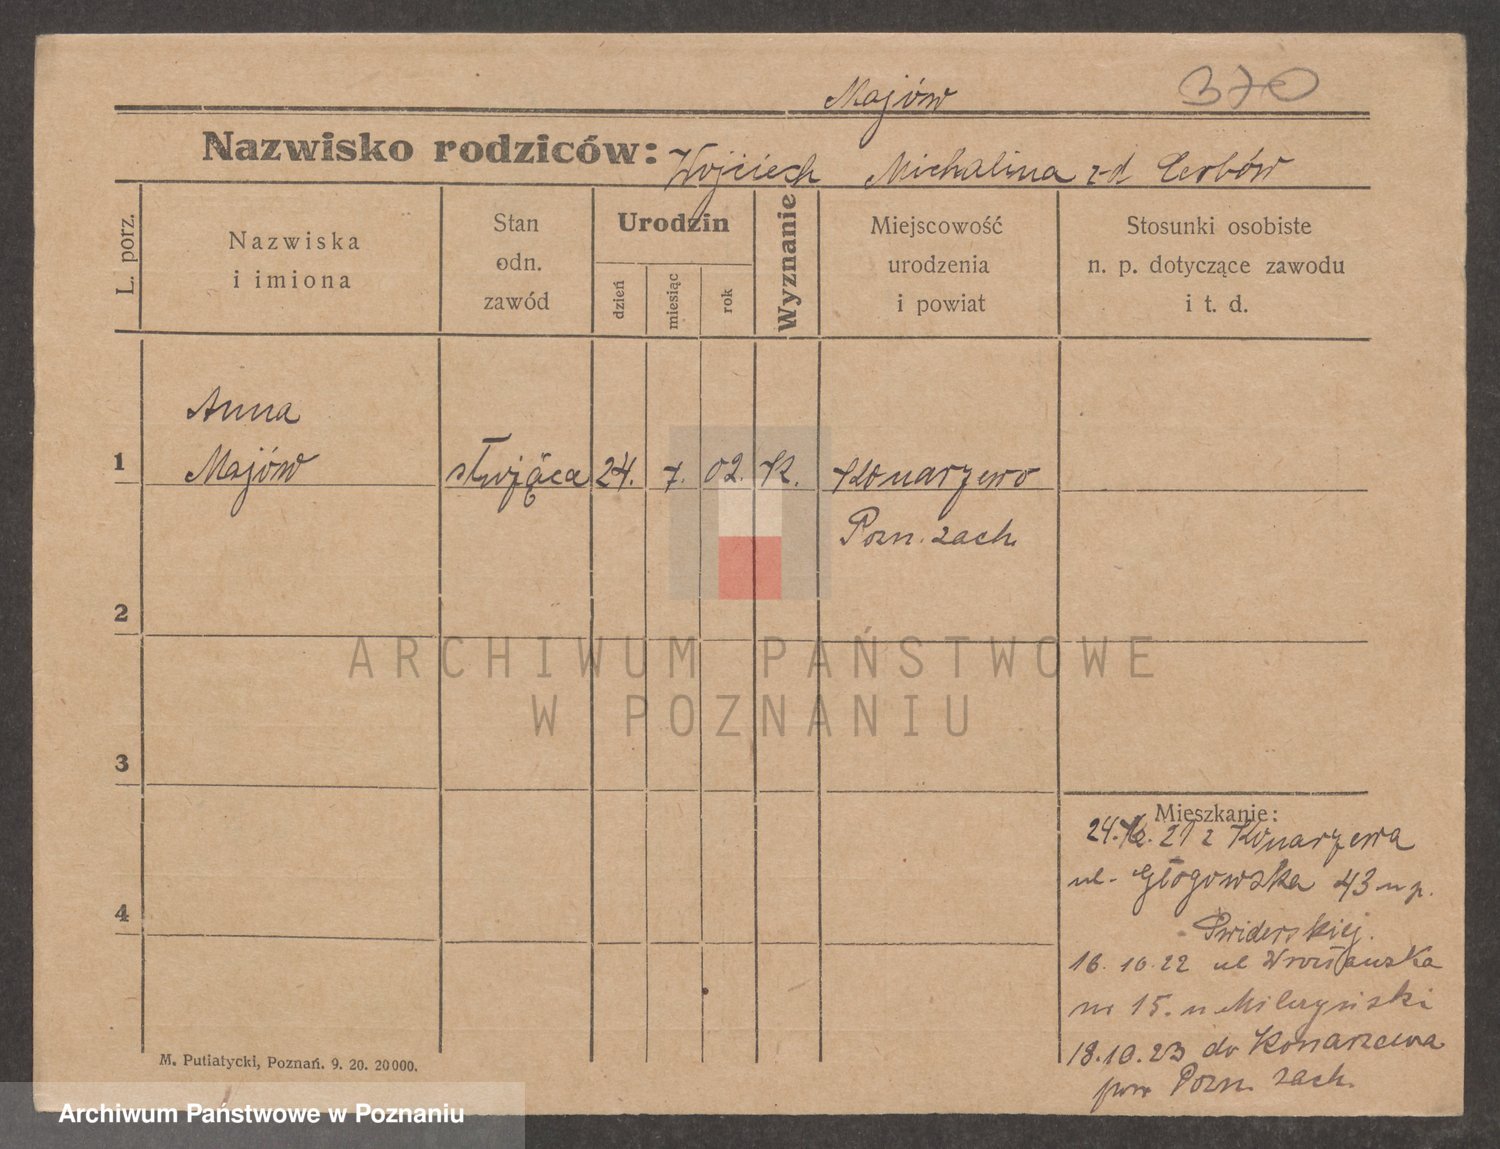 Majów 370
Nazwisko rodziców: Wojciech Michalina z d.
L. porz.
Nazwiska
i imiona
Stan
odn.
zawód
Urodzin
dzień
miesiąc
rok
Wyznanie
Miejscowość
urodzenia
i powiat
Stosunki osobiste
n. p. dotyczące zawodu
i t. d.
Anna
1 Majów służąca 24. 7. 02. K. Konarzewo
Pozn. zach.
2
3
4
Mieszkanie:
21 z Konarzewa
ul. Głogowska 43 u p.
Świderskiej.
16. 10. 22 ul Wrocławska
nr 15. u
18. 10. 23 do Konarzewa
pow Pozn. zach.
M. Putiatycki, Poznań. 9. 20. 20000.
ARCHIWUM PAŃSTWOWE
W POZNANIU
Archiwum Państwowe w Poznaniu